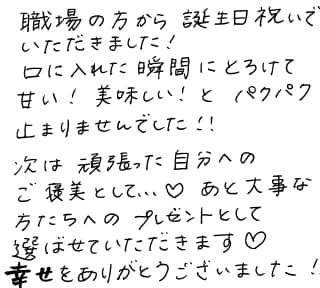 職場の方から 誕生日祝いで
いただきました!
口に入れた瞬間にとろけて
甘い! 美味しい! と パクパク
止まりませんでした!!
次は 頑張った自分への
ご褒美として...♡ あと大事な
方たちへの プレゼントとして
選ばせていただきます♡
幸せをありがとうございました!